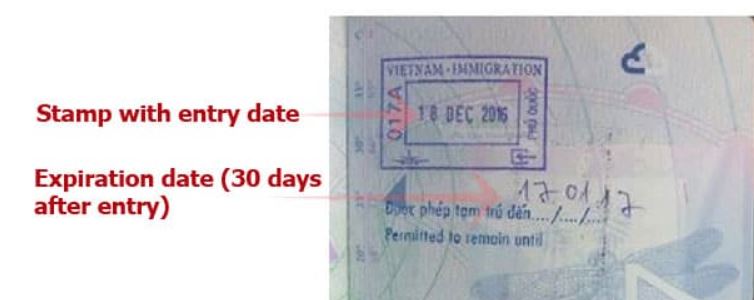 Stamp with entry date
Expiration date (30 days
after entry)
VIETNAM - IMMIGRATION
017A
18 DEC 2016
PHÚ QUỐC
17 01 17
Được phép tạm trú đến..../..../....
Permitted to remain until